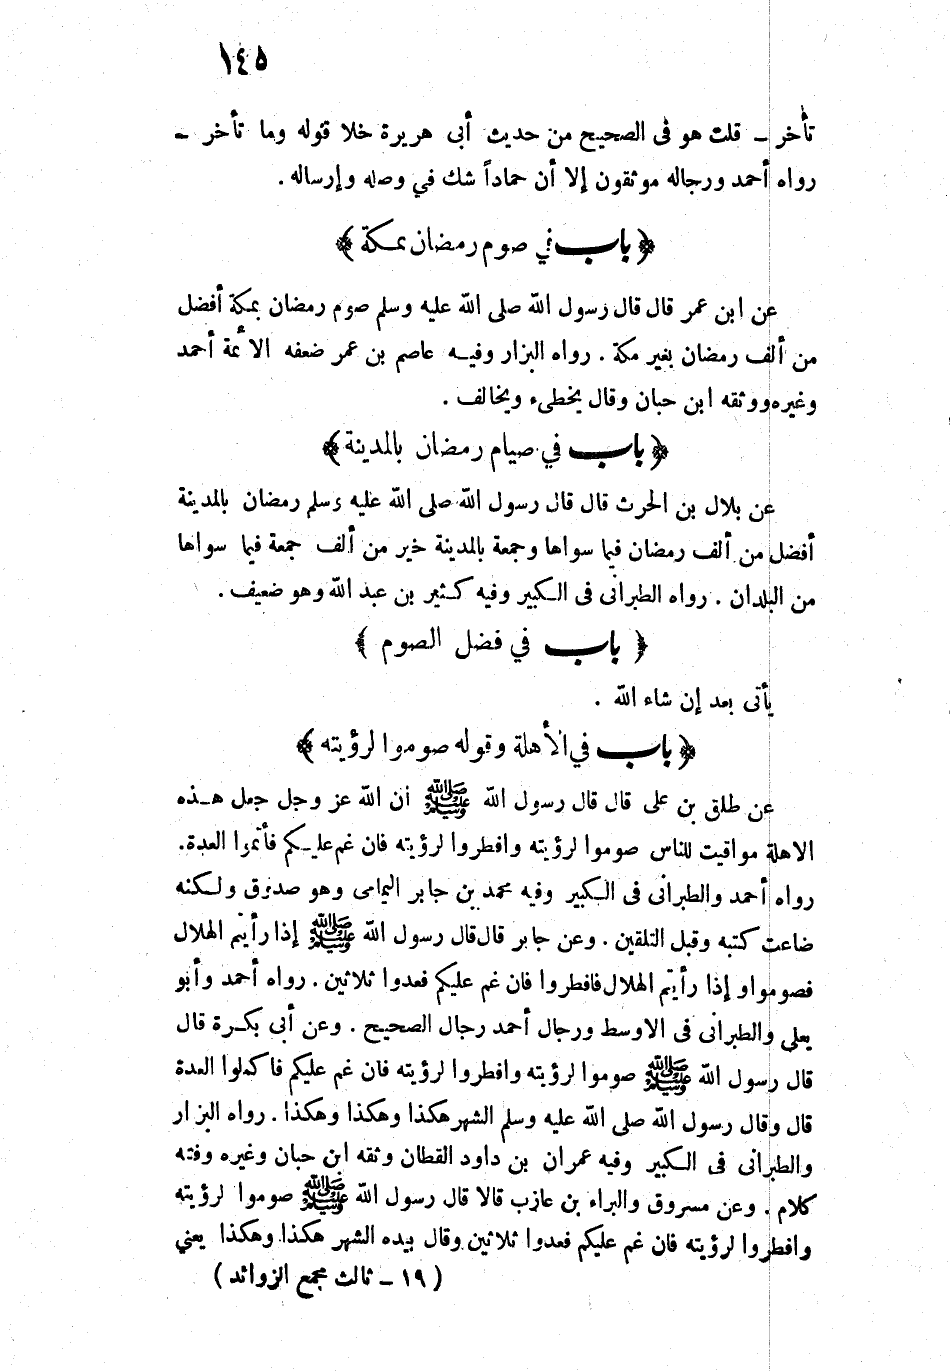 ١٤٥
تأخر ـ قلت هو فى الصحيح من حديث أبى هريرة خلا قوله وما تأخر ـ
رواه أحمد ورجاله موثقون إلا أن حماداً شك في وصله وإرساله .
﴿ باب في صوم رمضان بمكة ﴾
عن ابن عمر قال قال رسول الله صلى الله عليه وسلم صوم رمضان بمكة أفضل
من ألف رمضان بغير مكة . رواه البزار وفيه عاصم بن عمر ضعفه الأئمة أحمد
وغيره ووثقه ابن حبان وقال يخطىء ويخالف .
﴿ باب في صيام رمضان بالمدينة ﴾
عن بلال بن الحرث قال قال رسول الله صلى الله عليه وسلم رمضان بالمدينة
أفضل من ألف رمضان فيما سواها وجمعة بالمدينة خير من ألف جمعة فيما سواها
من البلدان . رواه الطبرانى فى الكبير وفيه كثير بن عبد الله وهو ضعيف .
﴿ باب في فضل الصوم ﴾
يأتى بعد إن شاء الله .
﴿ باب في الأهلة وقوله صوموا لرؤيته ﴾
عن طلق بن على قال قال رسول الله ﷺ ان الله عز وجل جعل هذه
الاهلة مواقيت للناس صوموا لرؤيته وافطروا لرؤيته فان غم عليكم فأتموا العدة.
رواه أحمد والطبرانى فى الكبير وفيه محمد بن جابر اليمامى وهو صدوق ولكنه
ضاعت كتبه وقبل التلقين . وعن جابر قال قال رسول الله ﷺ إذا رأيتم الهلال
فصوموا و إذا رأيتم الهلال فافطروا فان غم عليكم فعدوا ثلاثين . رواه أحمد وأبو
يعلى والطبرانى فى الاوسط ورجال أحمد رجال الصحيح . وعن أبى بكرة قال
قال رسول الله ﷺ صوموا لرؤيته وافطروا لرؤيته فان غم عليكم فاكملوا العدة
قال وقال رسول الله صلى الله عليه وسلم الشهر هكذا وهكذا وهكذا . رواه البزار
والطبرانى فى الكبير وفيه عمران بن داود القطان وثقه ابن حبان وغيره وفيه
كلام . وعن مسروق والبراء بن عازب قالا قال رسول الله ﷺ صوموا لرؤيته
وافطروا لرؤيته فان غم عليكم فعدوا ثلاثين وقال بيده الشهر هكذا وهكذا يعني
( ١٩ ـ ثالث مجمع الزوائد )